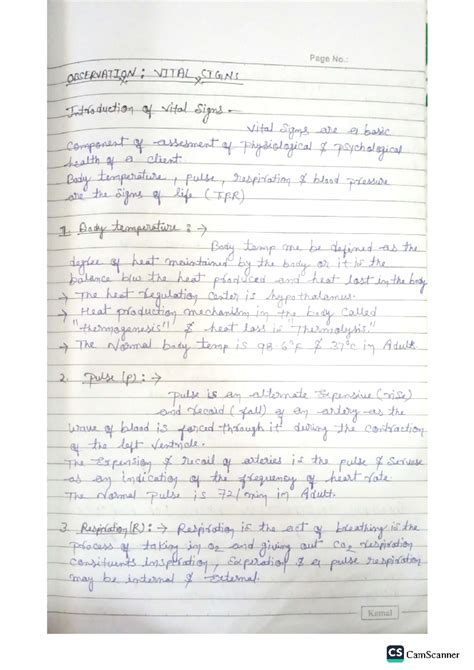 Page No.:
OBSERVATION : VITAL SIGNS
Introduction of Vital Signs -
Vital Signs are a basic
Component of assesment of physiological & psychological
health of a client.
Body temperature, pulse, respiration & blood pressure
are the signs of life (TPR)
1. Body temperature : →
Body temp me be defined as the
degree of heat maintained by the body or it is the
balance b/w the heat produced and heat lost in the body
→ The heat regulation Center is hypothalamus.
→ Heat production mechanism in the body Called
"thermogenesis" & heat loss is "Thermolysis"
→ The Normal body temp is 98.6°F & 37°C in Adult
2. Pulse (P) : →
Pulse is an alternate Expensive (rise)
and recoid (fall) of an artery as the
wave of blood is forced through it during the contraction
of the left ventricle.
The Expension & recoil of arteries is the pulse &
as an indication of the frequency of heart rate
The Normal Pulse is 72/min in Adult.
3. Respiration (R) : → Respiration is the act of breathing is the
process of taking in O2 and giving out CO2 respiration
Constituents Inspiration, Experation & a pulse respiration
may be internal & External.
Kamal
CS CamScanner